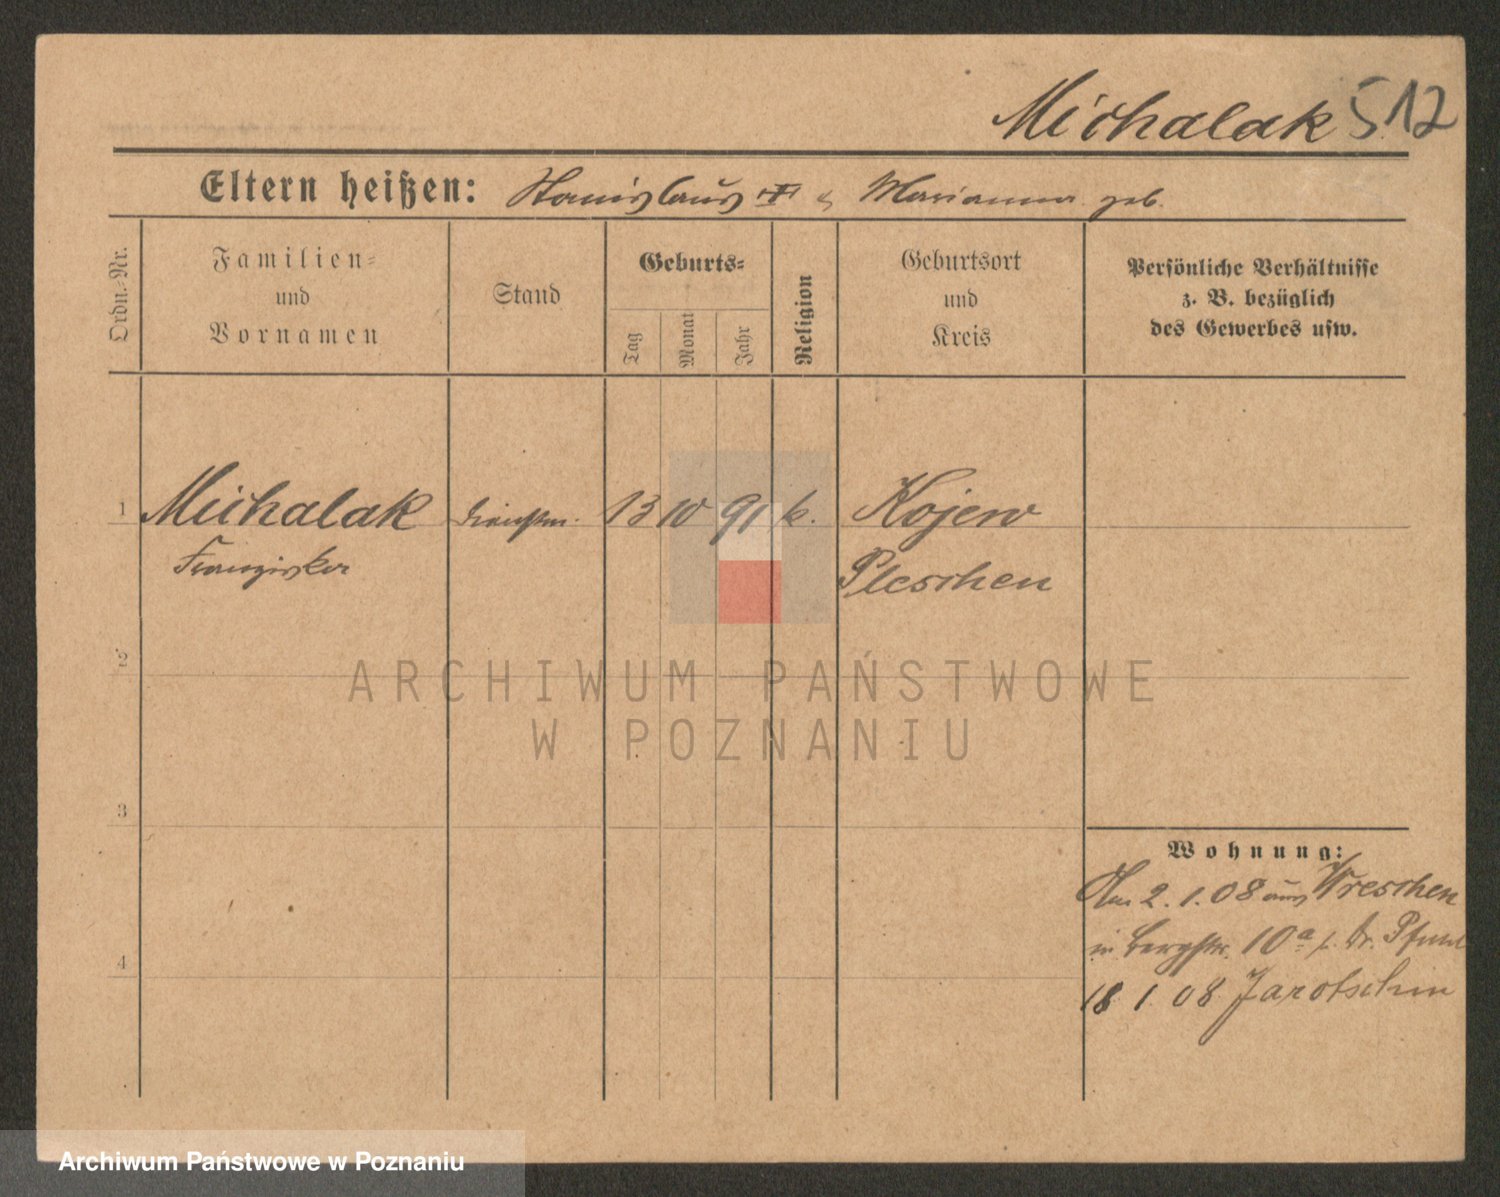 Michalak 512
Eltern heißen: Stanislaus & Marianna geb.
Ordn.-Nr.
Familien-
und
Vornamen
Stand
Geburts-
Tag
Monat
Jahr
Religion
Geburtsort
und
Kreis
Persönliche Verhältnisse
z. B. bezüglich
des Gewerbes usw.
1 Michalak Dienstm. 13 10 91 k. Kojew
Franziska Pleschen
2
3
4
Wohnung:
Am 2.1.08 aus Wreschen
in Bergstr. 10a b. Dr. Pfuhl
18.1.08. Jarotschin
ARCHIWUM PAŃSTWOWE
W POZNANIU
Archiwum Państwowe w Poznaniu